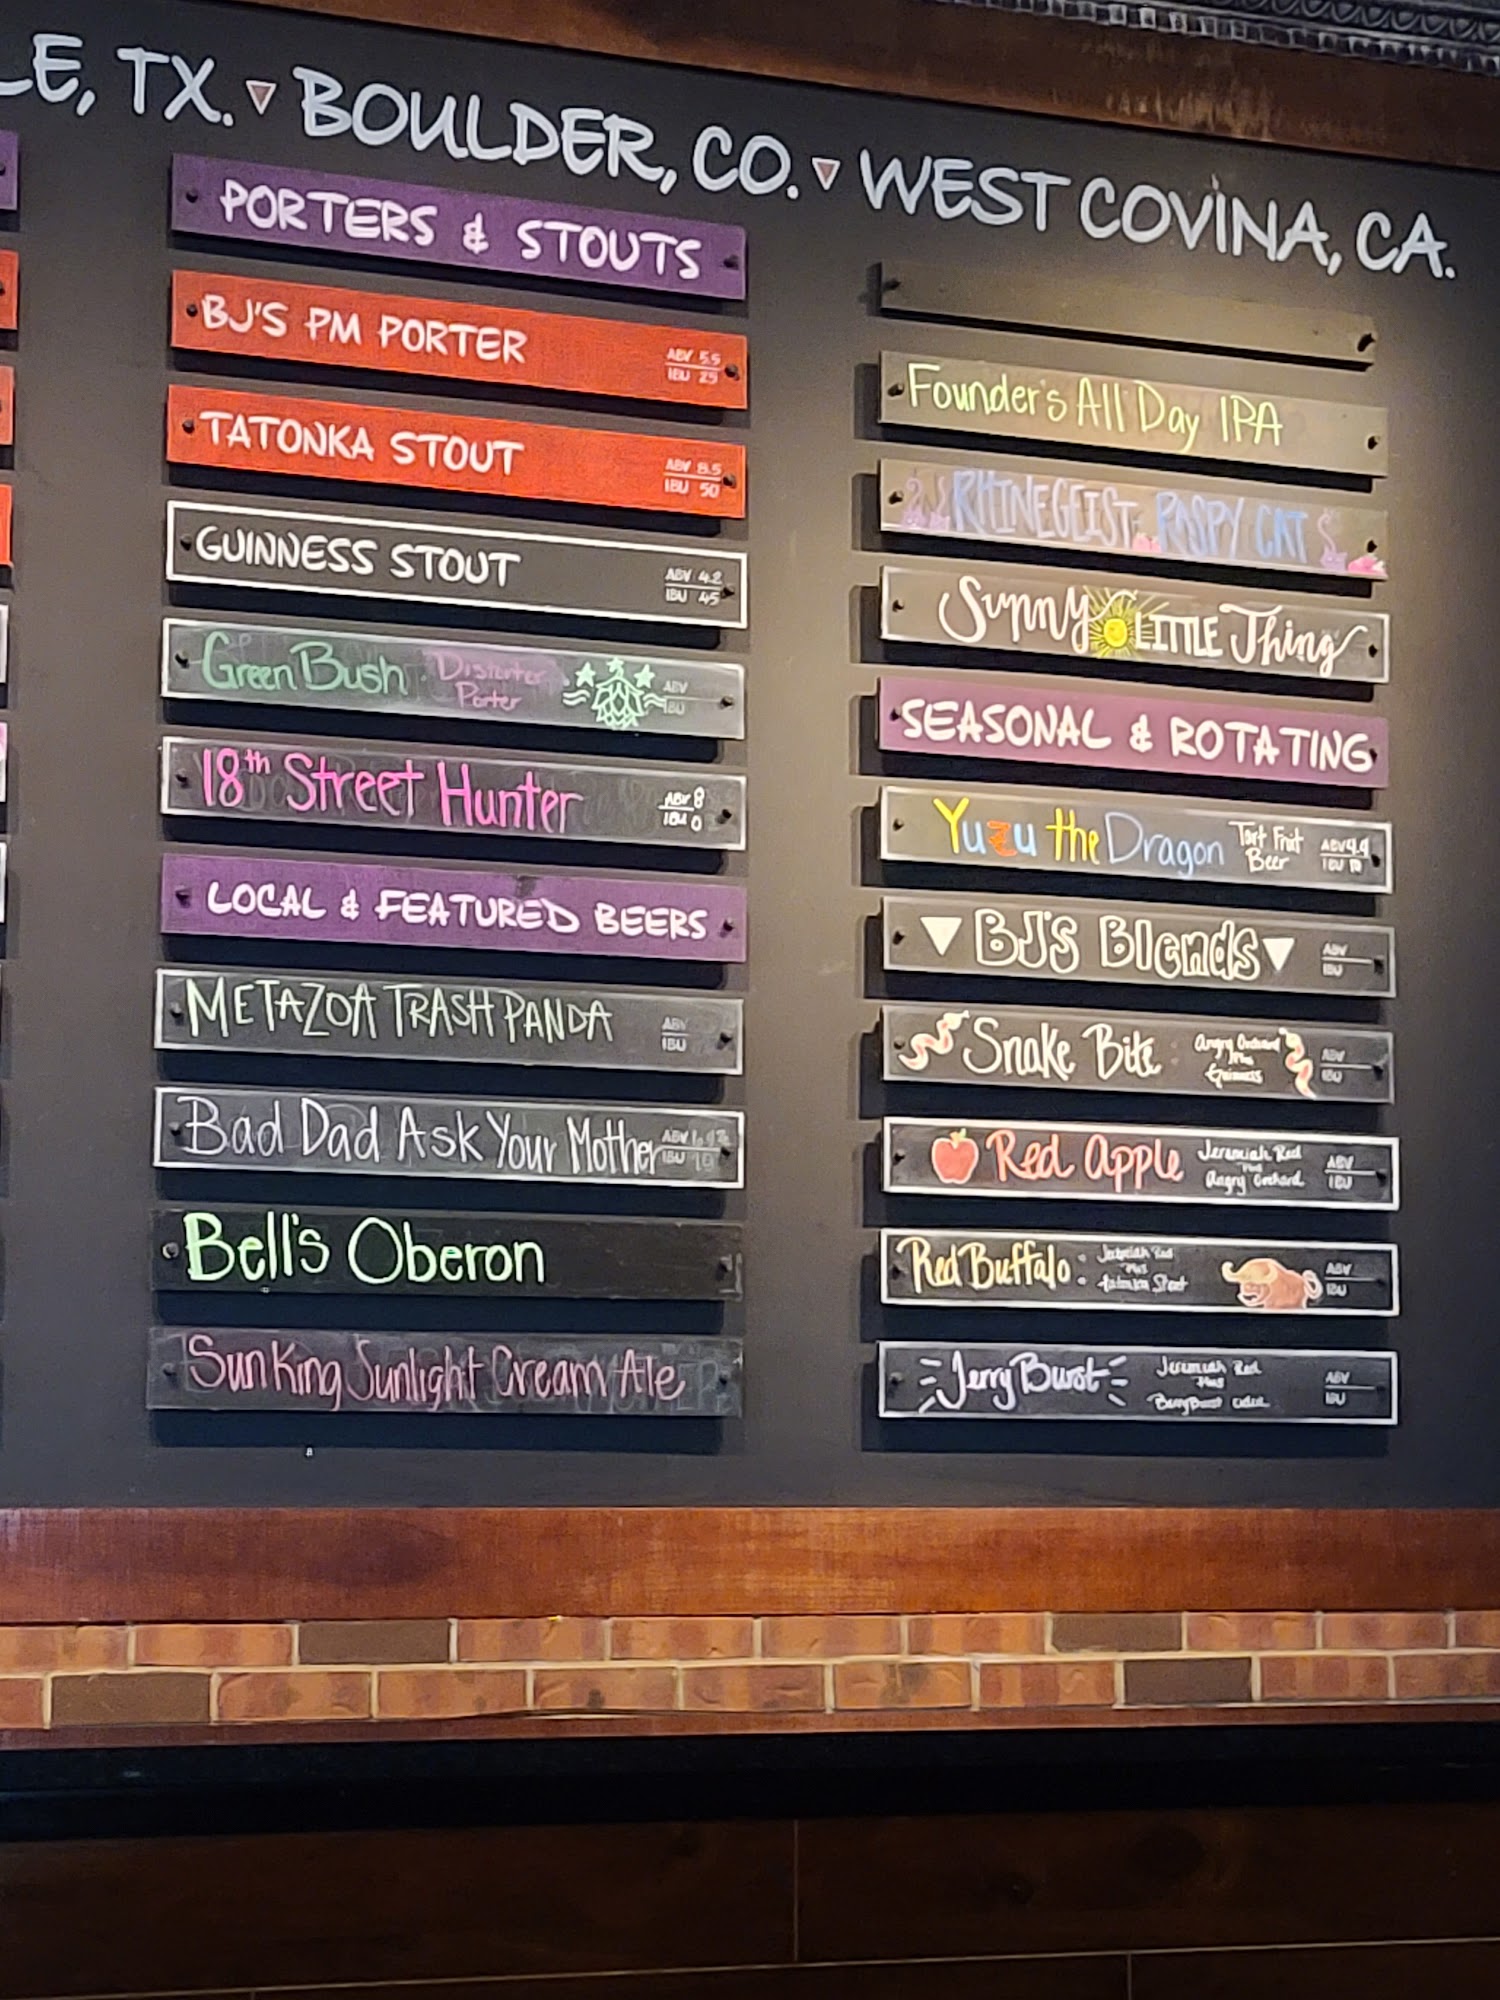 LE, TX. BOULDER, CO. WEST COVINA, CA.
PORTERS & STOUTS
BJ'S PM PORTER ABV 5.5
IBU 25
TATONKA STOUT ABV 8.5
IBU 50
GUINNESS STOUT ABV 4.2
IBU 45
Green Bush Distorter ABV
Porter IBU
18th Street Hunter ABV 8
IBU 0
LOCAL & FEATURED BEERS
METAZOA TRASH PANDA ABV
IBU
Bad Dad Ask Your Mother ABV
IBU
Bell's Oberon
Sun King Sunlight Cream Ale
Founder's All Day IPA
RHINEGEIST RASPY CAT
Sunny LITTLE Thing
SEASONAL & ROTATING
Yuzu the Dragon Tart Fruit ABV 4.4
Beer IBU 10
BJ's Blends ABV
IBU
Snake Bite Angry Orchard ABV
Plus
Guinness IBU
Red Apple Jeremiah Red ABV
Plus
Angry Orchard IBU
Red Buffalo : Jeremiah Red ABV
Plus
Tatonka Stout IBU
Jerry Burst Jeremiah Red ABV
Plus
BerryBurst Cider IBU